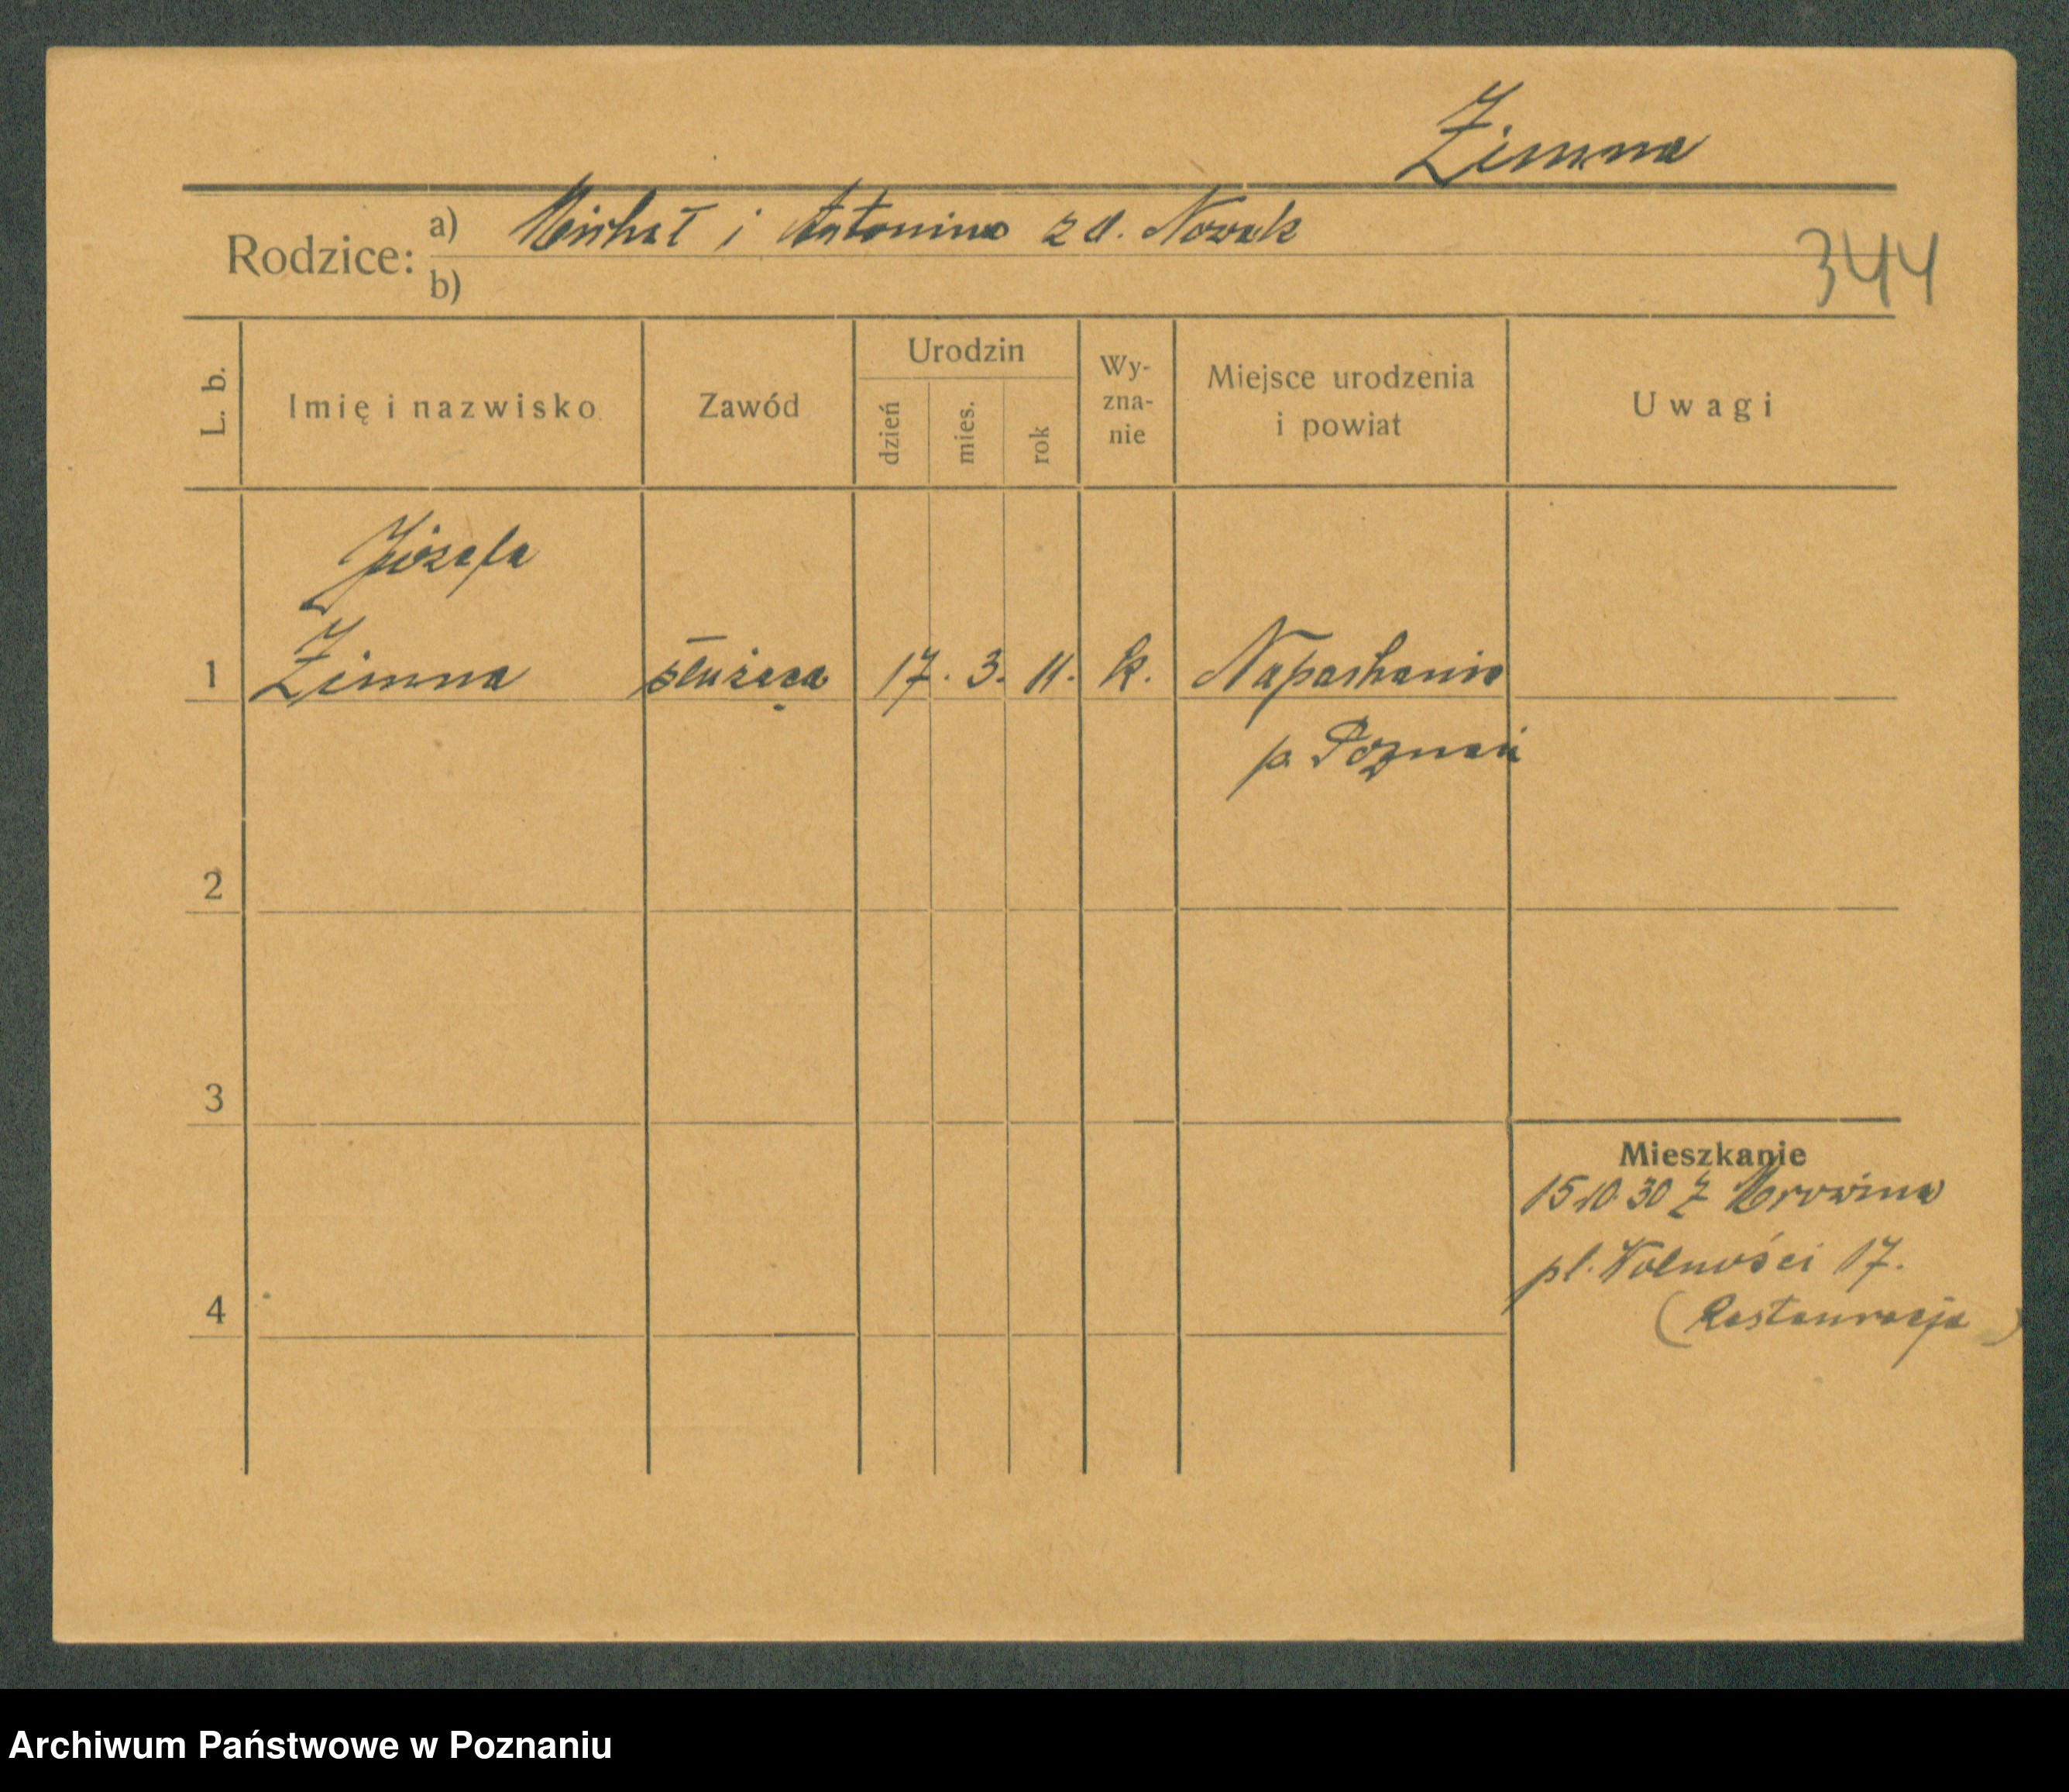 Zimna
Rodzice: a) Michał i Antonina z d. Nowak
b)
344
L. b. Imię i nazwisko Zawód Urodzin dzień mies. rok Wy-zna-nie Miejsce urodzenia i powiat Uwagi
Józefa
1 Zimna służąca 17. 3. 11. k. Napachanie
p. Poznań
2
3
Mieszkanie
15.10.30 Z Mrowina
pl. Wolności 17.
4
(Restauracja)
Archiwum Państwowe w Poznaniu